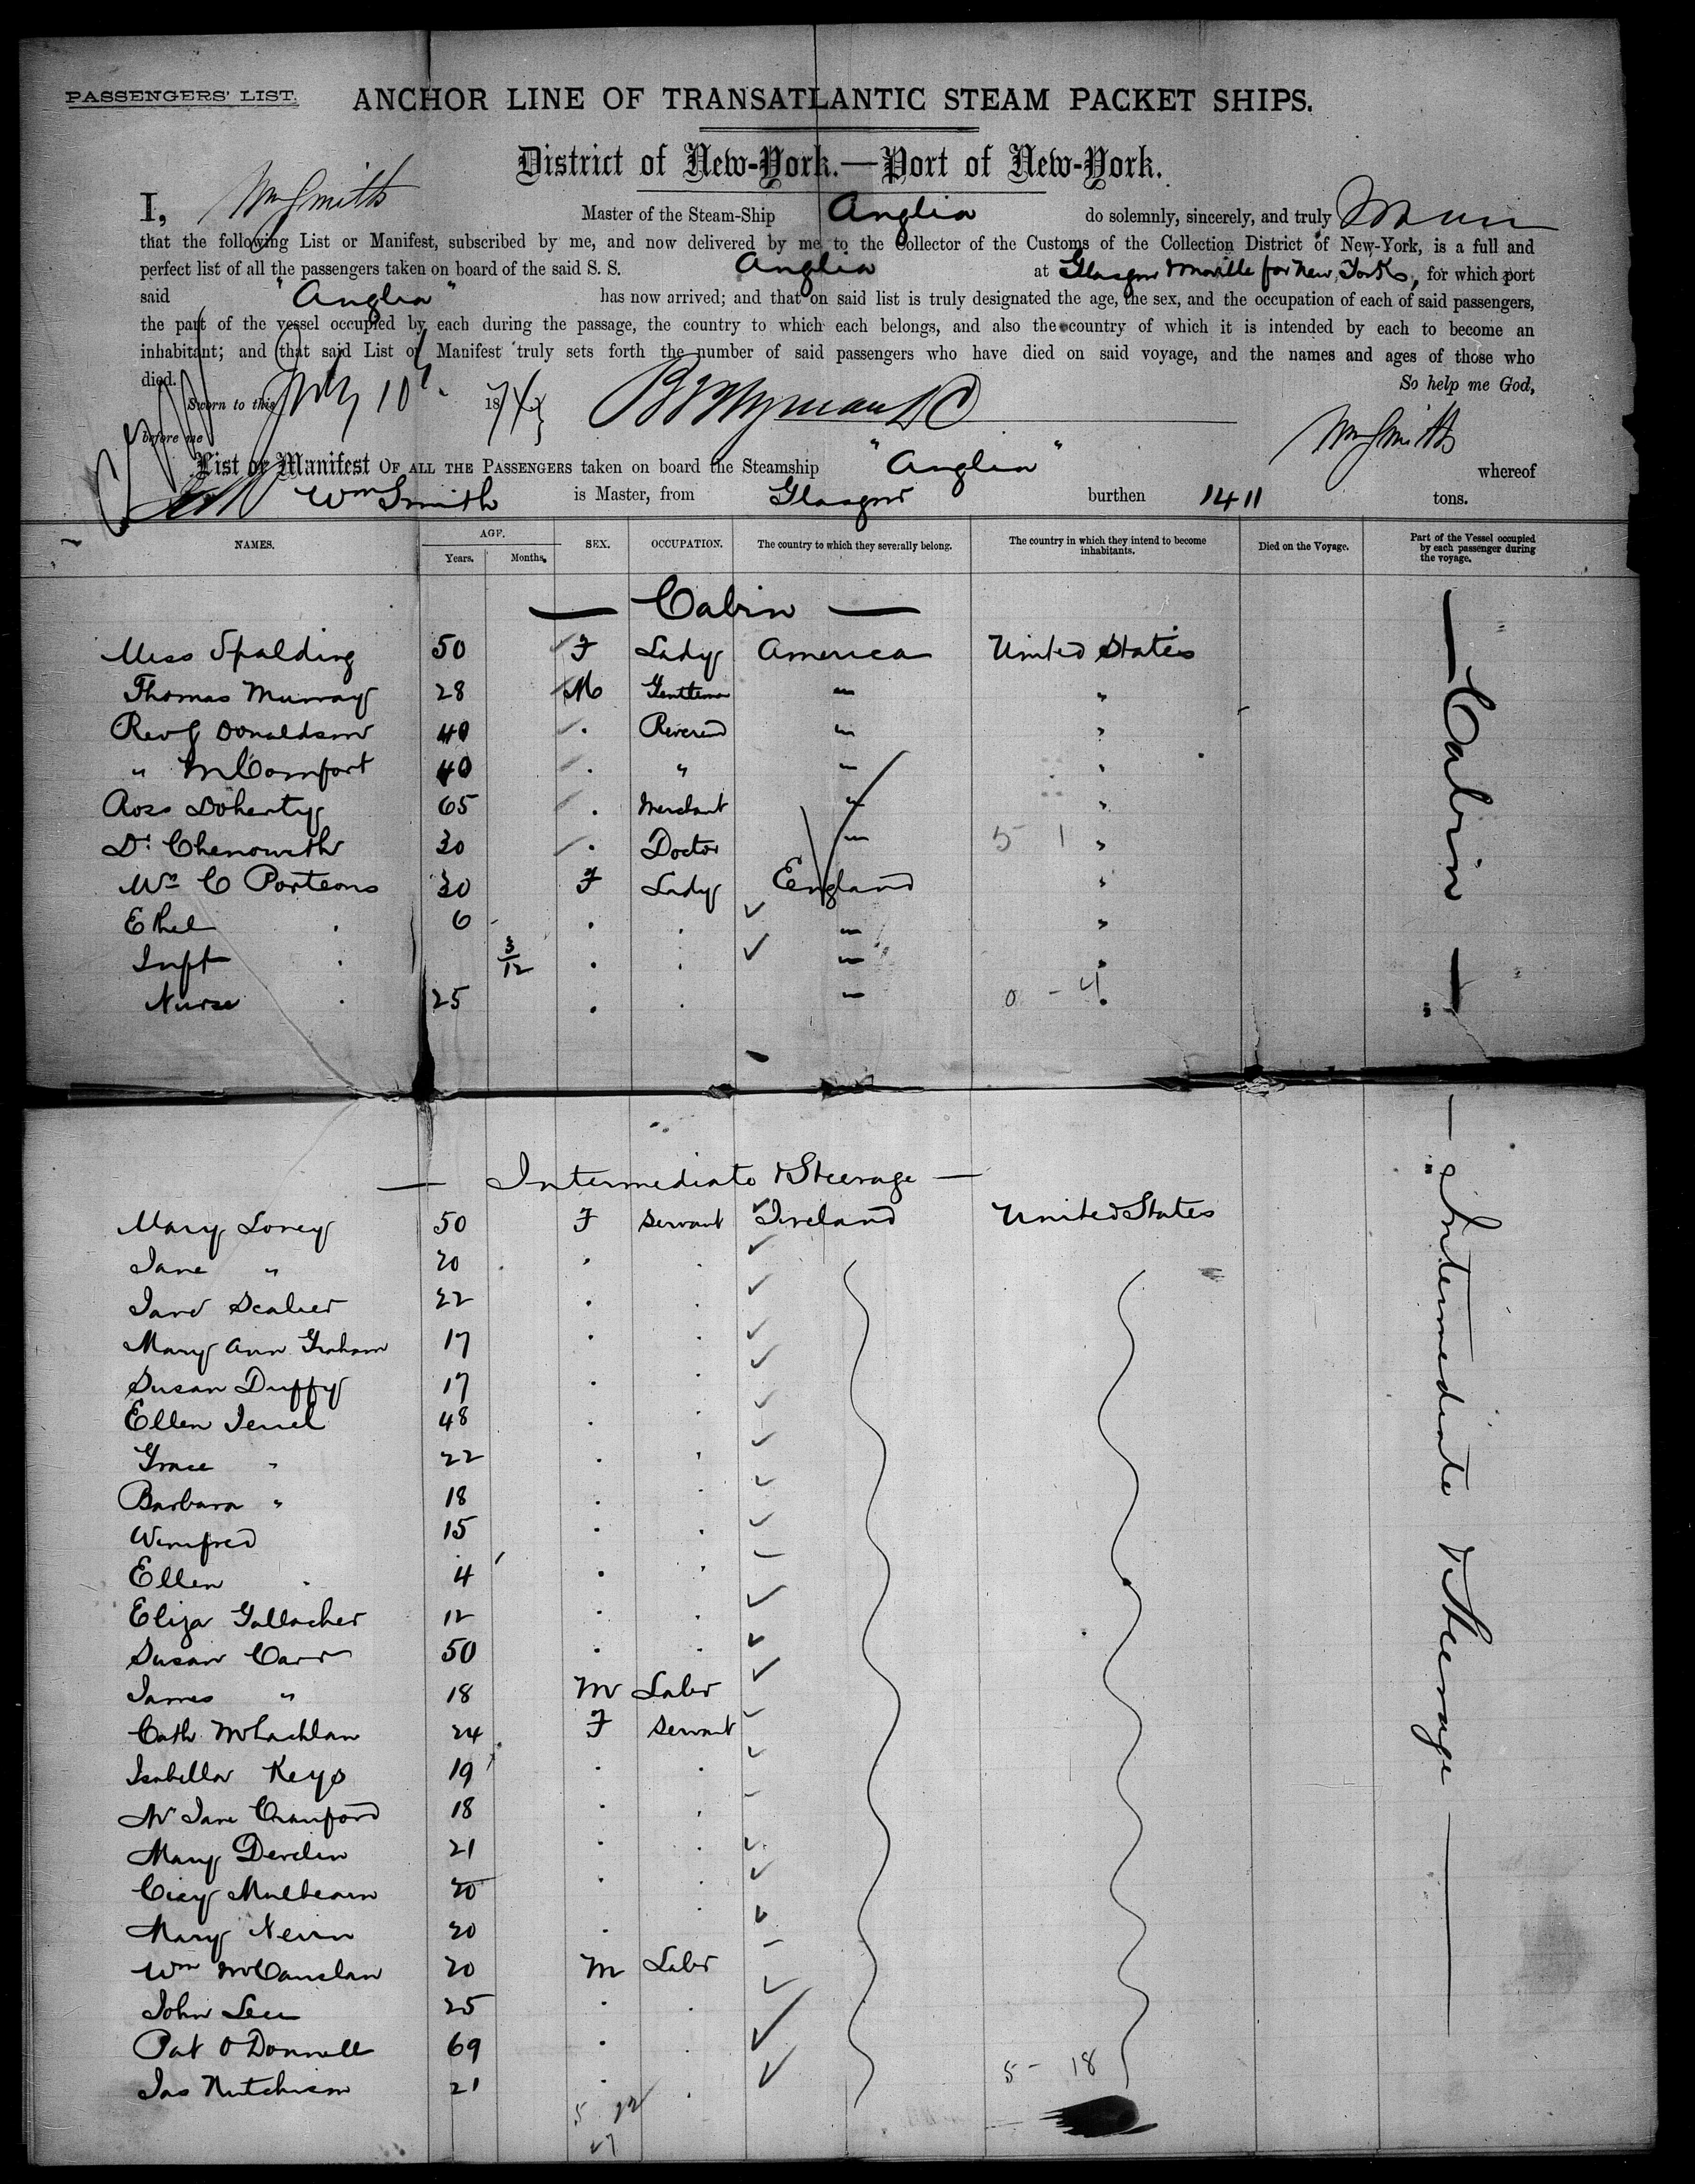 PASSENGERS' LIST.
ANCHOR LINE OF TRANSATLANTIC STEAM PACKET SHIPS.
District of New-York.—Port of New-York.
I, Wm Smith Master of the Steam-Ship Anglia do solemnly, sincerely, and truly
that the following List or Manifest, subscribed by me, and now delivered by me to the Collector of the Customs of the Collection District of New-York, is a full and
perfect list of all the passengers taken on board of the said S. S. Anglia at Glasgow & Moville for New York, for which port
said "Anglia" has now arrived; and that on said list is truly designated the age, the sex, and the occupation of each of said passengers,
the part of the vessel occupied by each during the passage, the country to which each belongs, and also the country of which it is intended by each to become an
inhabitant; and that said List or Manifest truly sets forth the number of said passengers who have died on said voyage, and the names and ages of those who
died. So help me God,
Sworn to this July 10 1874
before me Wm Smith
List or Manifest OF ALL THE PASSENGERS taken on board the Steamship "Anglia" whereof
Wm Smith is Master, from Glasgow burthen 1411 tons.
NAMES. AGE. Years. Months. SEX. OCCUPATION. The country to which they severally belong. The country in which they intend to become inhabitants. Died on the Voyage. Part of the Vessel occupied by each passenger during the voyage.
— Cabin —
Miss Spalding 50 F Lady America United States
Thomas Murray 28 M Gentleman " "
Rev J Donaldson 40 . Reverend " "
" McComfort 40 . " " "
Ross Doherty 65 . Merchant " "
Dr Chenowith 30 . Doctor " 5 1 "
Mrs C Porteous 30 F Lady England "
Ethel . 6 . . " "
Inft . 3/12 . . " "
Nurse . 25 . . " 0 - 4 .
— Cabin —
— Intermediate & Steerage —
Mary Loney 50 F Servant Ireland United States
Jane " 20 . .
Jane 22 . .
Mary Ann Graham 17 . .
Susan Duffy 17 . .
Ellen 48 . .
Grace " 22 . .
Barbara " 18 . .
Winifred 15 . .
Ellen . 4 . .
Eliza Gallacher 12 . .
Susan Carr 50 . .
James " 18 M Labr
Cath McLachlan 24 F Servant
Isabella Keys 19 . .
M Jane Crawford 18 . .
Mary Devlin 21 . .
Cicy Mulhearn 20 . .
Mary Nevin 20 . .
Wm McCauslan 20 M Labr
John Lee 25 . .
Pat O'Donnell 69 . .
Jas Hutchison 21 . . 5 - 18
— Intermediate & Steerage —